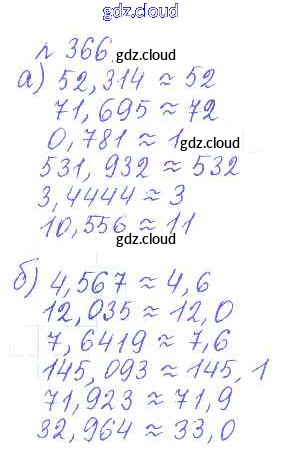 gdz.cloud
№ 366.
gdz.cloud
а) 52,314 ≈ 52
71,695 ≈ 72
0,781 ≈ 1
gdz.cloud
531,932 ≈ 532
3,4444 ≈ 3
10,556 ≈ 11
gdz.cloud
б) 4,567 ≈ 4,6
12,035 ≈ 12,0
gdz.cloud
7,6419 ≈ 7,6
145,093 ≈ 145,1
gdz.cloud
71,923 ≈ 71,9
32,964 ≈ 33,0
gdz.cloud